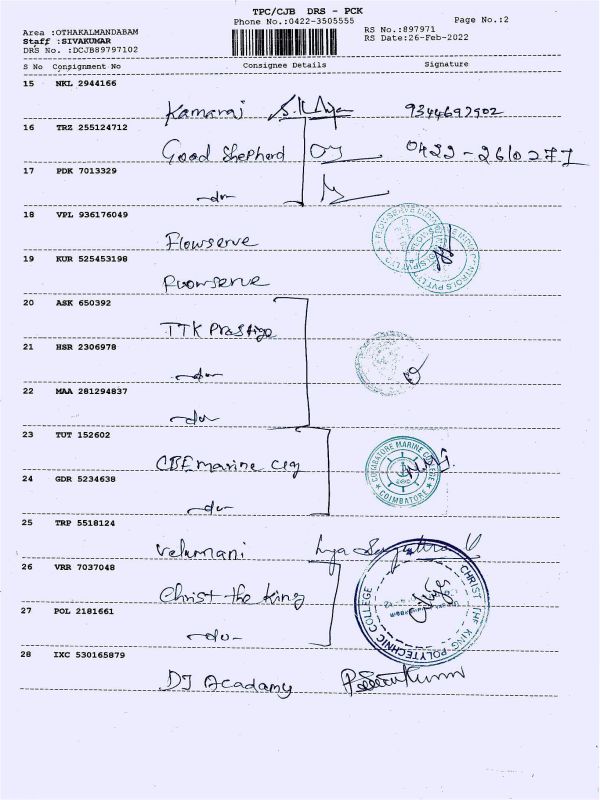 TPC/CJB DRS - PCK
Phone No.:0422-3505555
Page No.:2
Area :OTHAKALMANDABAM
Staff :SIVAKUMAR
DRS No. :DCJB89797102
RS No.:897971
RS Date:26-Feb-2022
S No Consignment No Consignee Details Signature
15 NKL 2944166
Kamaraj 9344697902
16 TRZ 255124712
Good Shepherd 0422-2610271
17 PDK 7013329
-do-
18 VPL 936176049
Flowserve
19 KUR 525453198
Flowserve
20 ASK 650392
TTK Prestige
21 HSR 2306978
-do-
22 MAA 281294837
-do-
23 TUT 152602
CBE marine clg
COIMBATORE MARINE COLLEGE
COIMBATORE
24 GDR 5234638
-do-
25 TRP 5518124
Velumani
26 VRR 7037048
Christ the King
CHRIST THE KING POLYTECHNIC COLLEGE
27 POL 2181661
-do-
28 IXC 530165879
DJ Acadamy